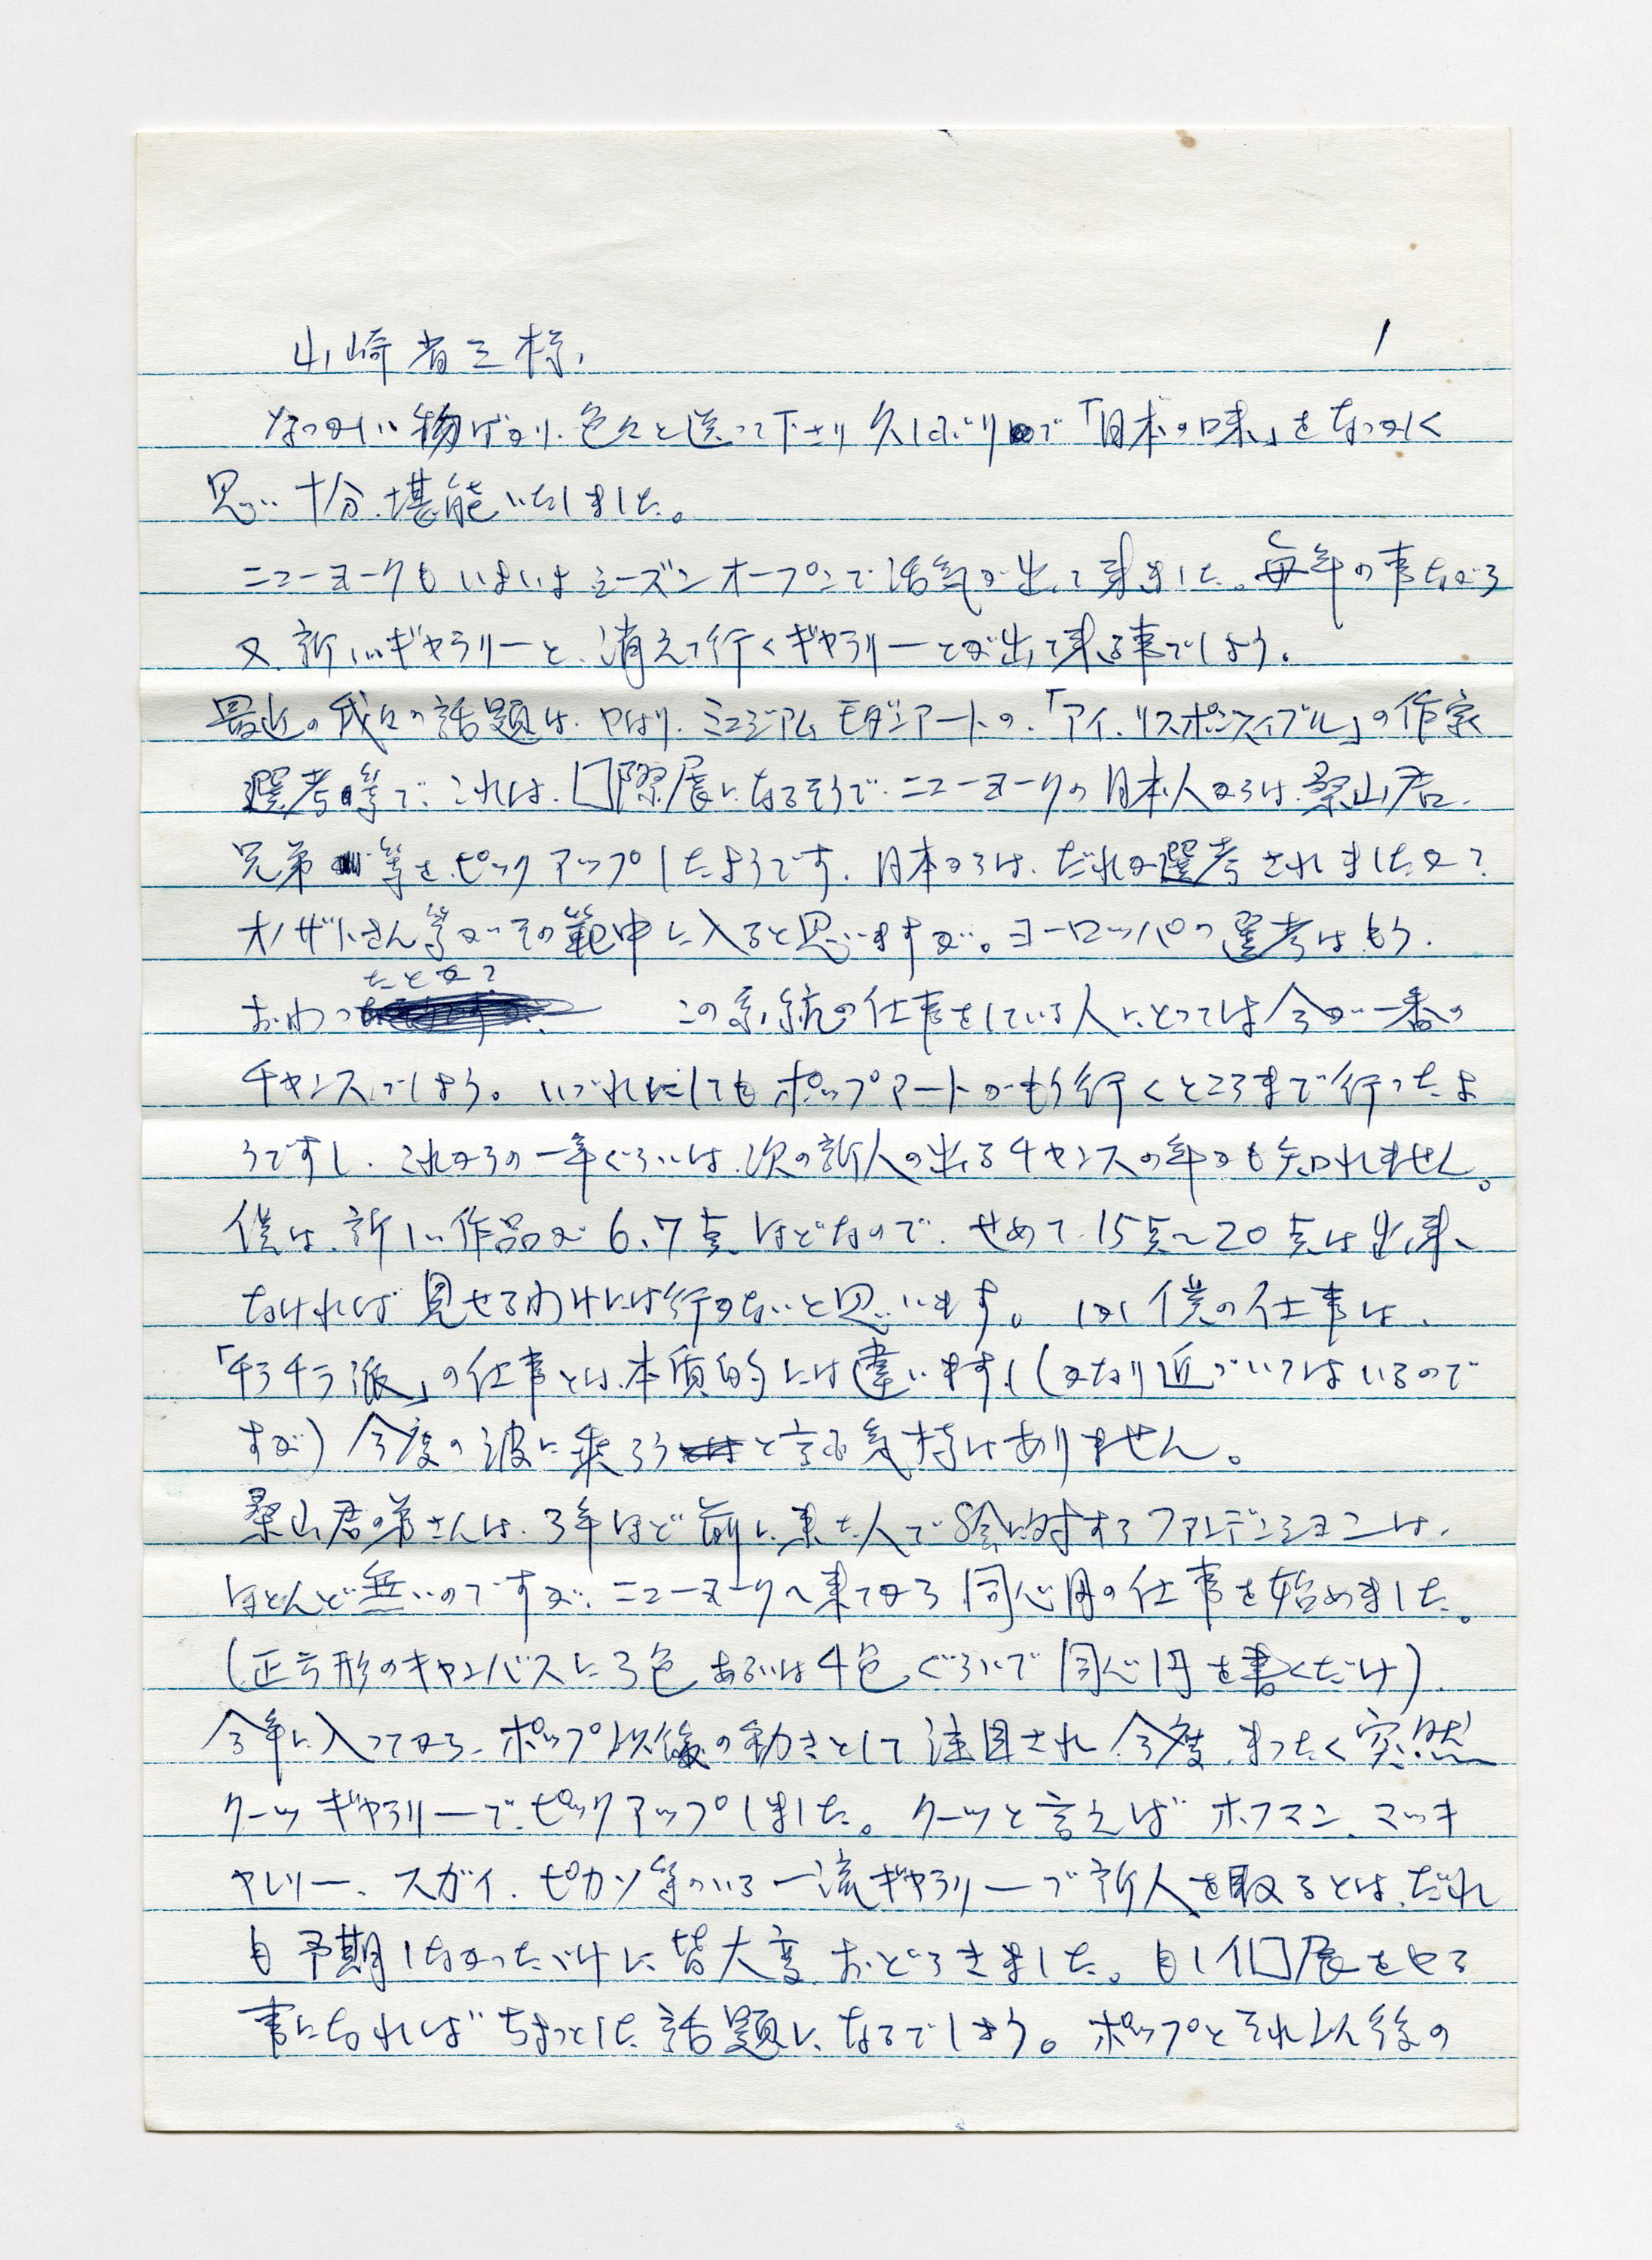 山崎省三様、
1
なつかしい物ばかり、色々と送って下さり久しぶりで「日本の味」をなつかしく
思い十分堪能いたしました。
ニューヨークもいよいよシーズンオープンで活気が出て来ました。毎年の事ながら
又、新しいギャラリーと、消えて行くギャラリーとが出て来る事でしょう。
最近の我々の話題は、やはり、ミュジアムモダンアートの、「アイ、リスポンスィブル」の作家
選考等で、これは、囗際展になるそうで、ニューヨークの日本人からは、桑山君、
兄弟 等を、ピックアップしたようです、日本からは、だれが選考されましたか?
オノザトさん等がその範中に入ると思いますが。ヨーロッパの選考は、もう、
おわったとか? この系統の仕事をしている人にとっては今が一番の
チャンスでしょう。いづれにしてもポップアートがもう行くところまで行ったよ
うですし、これからの一年ぐらいは、次の新人の出るチャンスの年かも知れません。
僕は、新しい作品が6、7点ほどなので、せめて、15点〜20点は出来、
なければ見せるわけには行かないと思います。しかし僕の仕事は、
「チラチラ派」の仕事とは、本質的には違いますし(かなり近づいてはいるので
すが)今度の波に乗ろうと言う気持はありません。
桑山君の弟さんは、3年ほど前に来た人で絵に対するファンデンションは、
ほとんど無いのですが、ニューヨークへ来てから同心円の仕事を始めました。
(正方形のキャンバスに3色あるいは4色ぐらいで同心円を書くだけ)
今年に入ってから、ポップ以後の動きとして注目され、今度、まったく突然
クーツギャラリーで、ピックアップしました。クーツと言えばホフマン、マッキ
ャレリー、スガイ、ピカソ等のいる一流ギャラリーで新人を取るとは、だれ
も予期しなかっただけに皆大変おどろきました。もし個展をやる
事になればちょっとした話題に、なるでしょう。ポップとそれ以後の